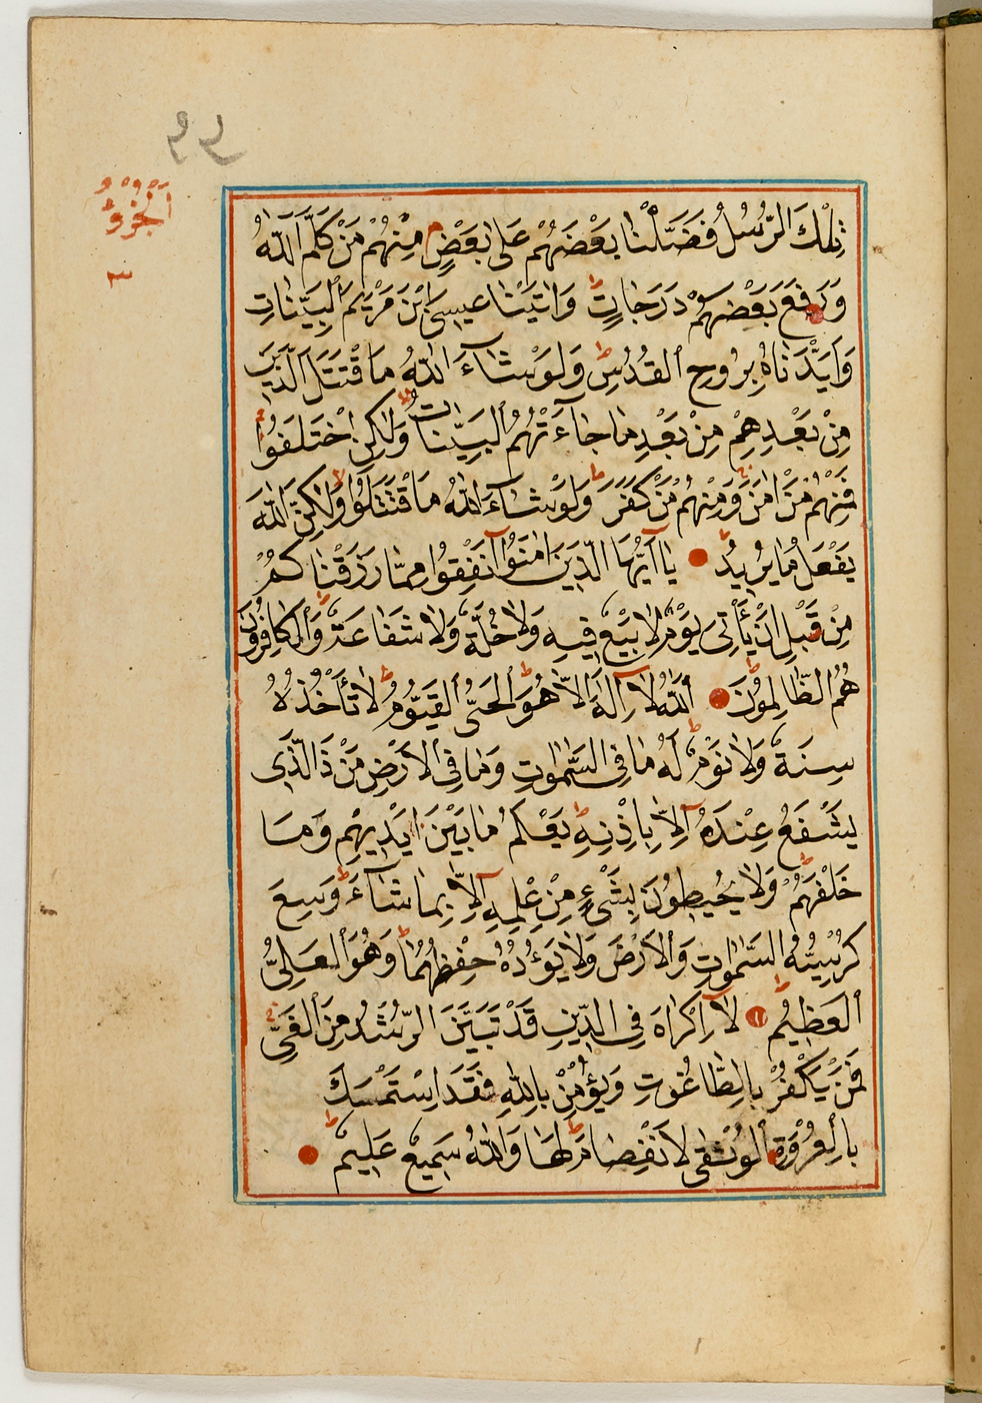 اَلْجُزْؤُ
٣
تِلْكَ الرُّسُلُ فَضَّلْنَا بَعْضَهُمْ عَلٰى بَعْضٍ م مِنْهُمْ مَنْ كَلَّمَ اللّٰهُ
وَرَفَعَ بَعْضَهُمْ دَرَجَاتٍ ط وَاٰتَيْنَا عِيسَى ابْنَ مَرْيَمَ الْبَيِّنَاتِ
وَاَيَّدْنَاهُ بِرُوحِ الْقُدُسِ ط وَلَوْ شَآءَ اللّٰهُ مَا قْتَتَلَ الَّذِينَ
مِنْ بَعْدِهِمْ مِنْ بَعْدِ مَا جَآءَتْهُمُ الْبَيِّنَاتُ وَلٰكِنِ اخْتَلَفُوا
فَمِنْهُمْ مَنْ اٰمَنَ وَمِنْهُمْ مَنْ كَفَرَ ط وَلَوْ شَآءَ اللّٰهُ مَا قْتَتَلُوا وَلٰكِنَّ اللّٰهَ
يَفْعَلُ مَا يُرِيدُ يَا اَيُّهَا الَّذِينَ اٰمَنُوآ اَنْفِقُوا مِمَّا رَزَقْنَا كُمْ
مِنْ قَبْلِ اَنْ يَأْتِىَ يَوْمٌ لَا بَيْعٌ فِيهِ وَلَا خُلَّةٌ وَلَا شَفَاعَةٌ ط وَالْكَافِرُونَ
هُمُ الظَّالِمُونَ اَللّٰهُ لَآ اِلٰهَ اِلَّا هُوَ الْحَىُّ الْقَيُّومُ لَا تَأْخُذُهُ
سِنَةٌ وَلَا نَوْمٌ ط لَهُ مَا فِى السَّمٰوَاتِ وَمَا فِى الْاَرْضِ مَنْ ذَا الَّذِى
يَشْفَعُ عِنْدَهُ اِلَّا بِاِذْنِهِ ط يَعْلَمُ مَا بَيْنَ اَيْدِيهِمْ وَمَا
خَلْفَهُمْ وَلَا يُحِيطُونَ بِشَىْءٍ مِنْ عِلْمِهِ اِلَّا بِمَا شَآءَ وَسِعَ
كُرْسِيُّهُ السَّمٰوَاتِ وَالْاَرْضَ وَلَا يَؤُدُهُ حِفْظُهُمَا وَهُوَ الْعَلِىُّ
الْعَظِيمُ لَآ اِكْرَاهَ فِى الدِّينِ قَدْ تَبَيَّنَ الرُّشْدُ مِنَ الْغَىِّ
فَمَنْ يَكْفُرْ بِالطَّاغُوتِ وَيُؤْمِنْ بِاللّٰهِ فَقَدِ اسْتَمْسَكَ
بِالْعُرْوَةِ الْوُثْقٰى لَا نْفِصَامَ لَهَا وَاللّٰهُ سَمِيعٌ عَلِيمٌ